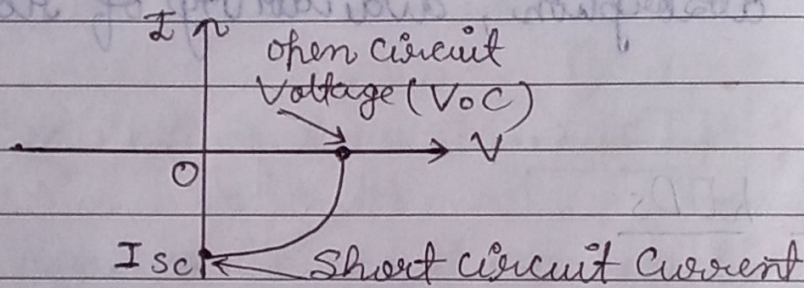 I
open circuit
Voltage (Voc)
V
O
Isc
Short circuit Current